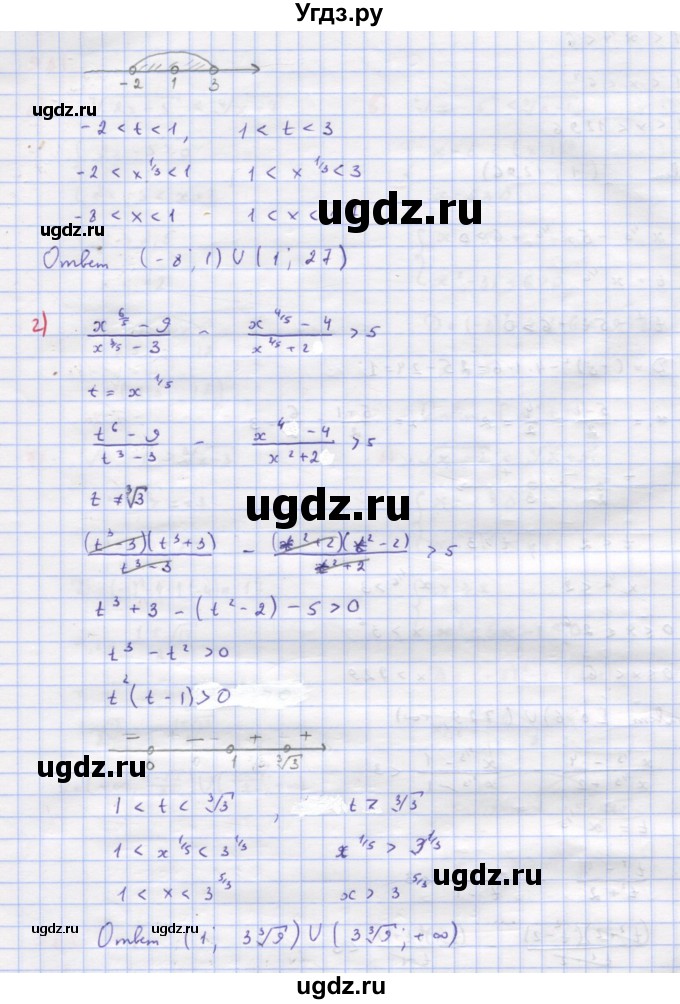 Угдз.ру
-2 1 3
ugdz.ru ugdz.ru
-2 < t < 1, 1 < t < 3
-2 < x^1/3 < 1 1 < x^1/3 < 3
ugdz.ru
-8 < x < 1 1 < x <
ugdz.ru
Ответ (-8; 1) ∪ (1; 27)
г) (x^6/5 - 9)/(x^3/5 - 3) - (x^4/5 - 4)/(x^2/5 + 2) > 5
ugdz.ru
t = x^1/5
(t^6 - 9)/(t^3 - 3) - (x^4 - 4)/(x^2 + 2) > 5
t ≠ ∛3
ugdz.ru
((t^3 - 3)(t^3 + 3))/(t^3 - 3) - ((t^2 + 2)(t^2 - 2))/(t^2 + 2) > 5
ugdz.ru
t^3 + 3 - (t^2 - 2) - 5 > 0
t^3 - t^2 > 0
t^2(t - 1) > 0
ugdz.ru
- - - + +
0 1 ∛3
ugdz.ru
1 < t < ∛3, t > ∛3
1 < x^1/5 < 3^1/3 x^1/5 > 3^1/3
ugdz.ru
1 < x < 3^5/3 x > 3^5/3
ugdz.ru
Ответ (1; 3∛9) ∪ (3∛9; +∞)
ugdz.ru
ugdz.ru